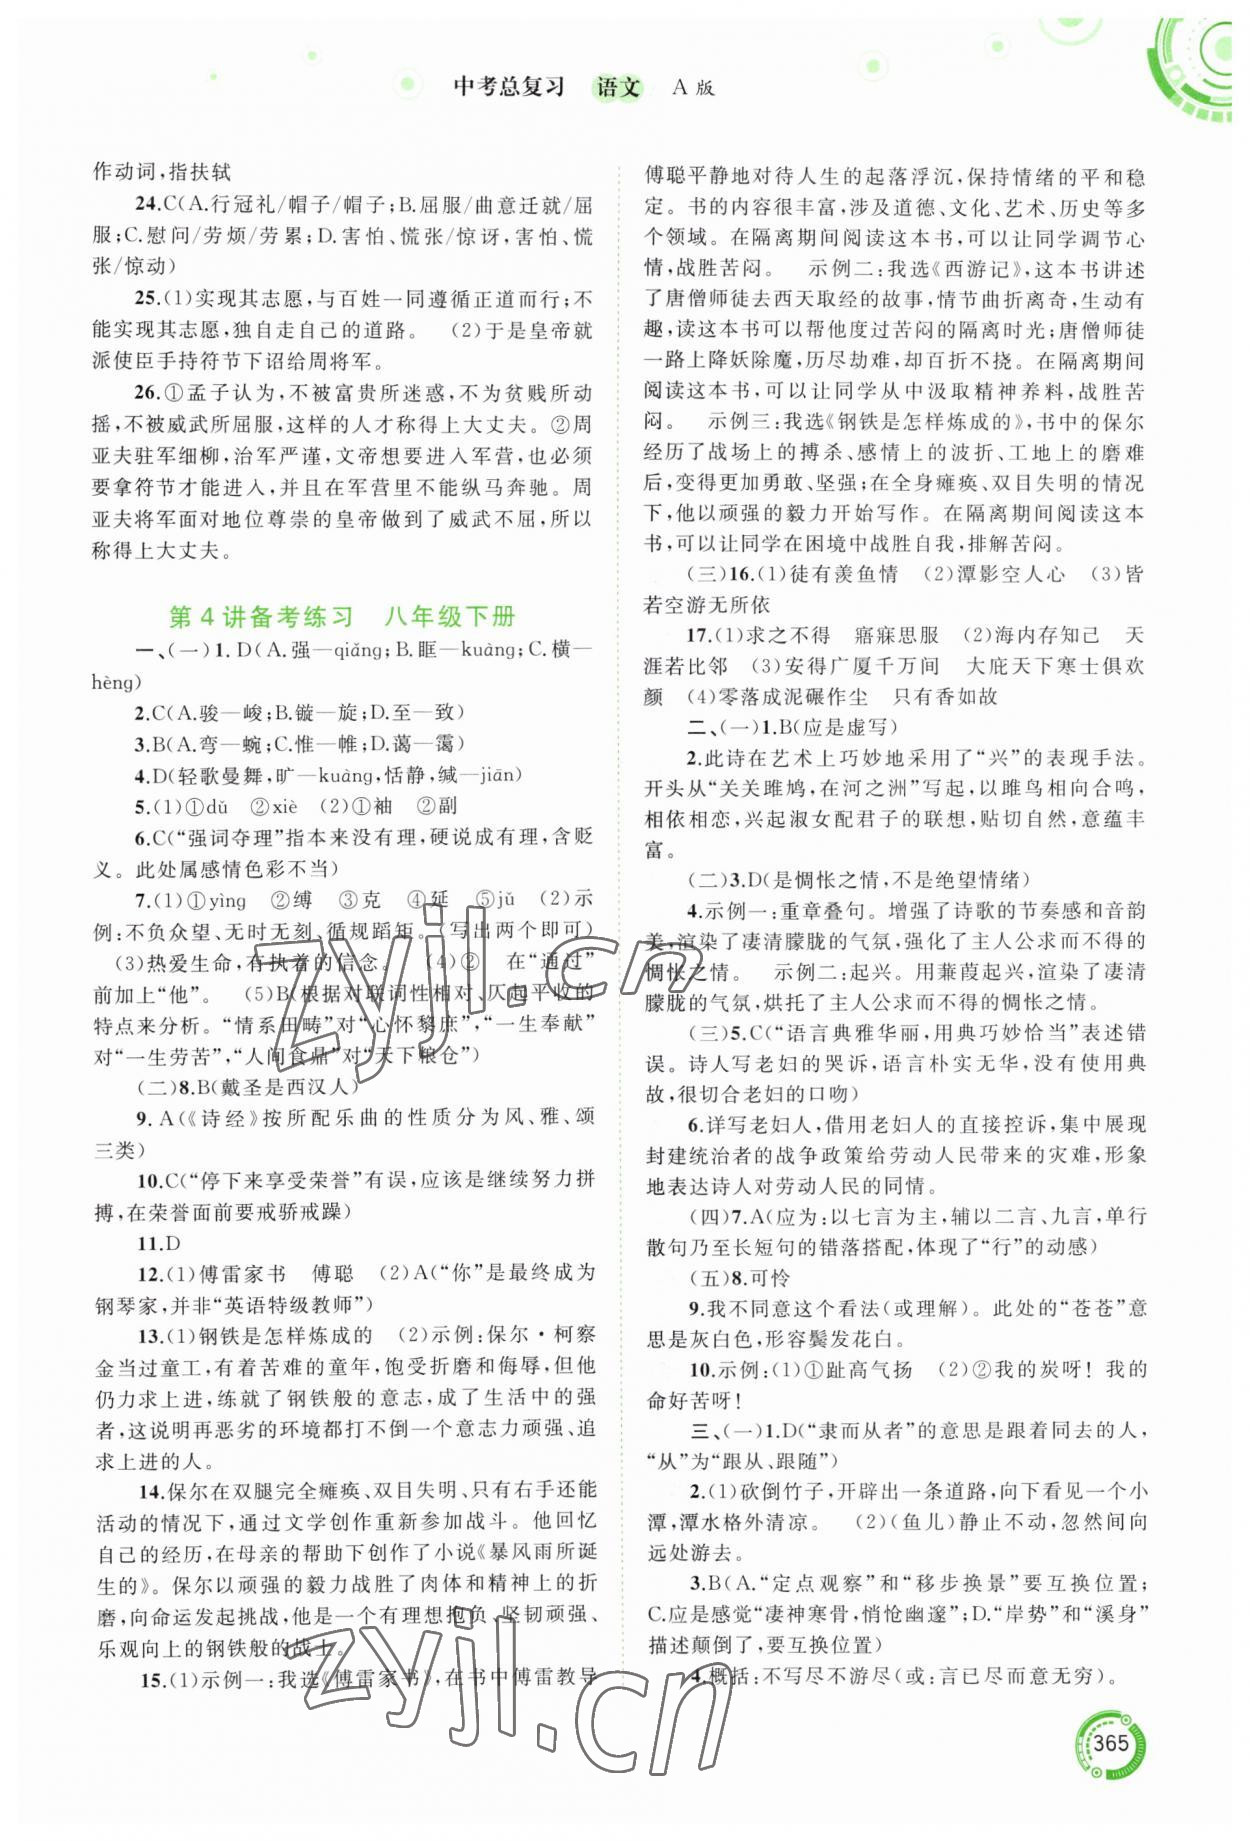 中考总复习 语文 A 版
作动词,指扶轼
24.C(A.行冠礼/帽子/帽子;B.屈服/曲意迁就/屈
服;C.慰问/劳烦/劳累;D.害怕、慌张/惊讶,害怕、慌
张/惊动)
25.(1)实现其志愿,与百姓一同遵循正道而行;不
能实现其志愿,独自走自己的道路。 (2)于是皇帝就
派使臣手持符节下诏给周将军。
26.①孟子认为,不被富贵所迷惑,不为贫贱所动
摇,不被威武所屈服,这样的人才称得上大丈夫。②周
亚夫驻军细柳,治军严谨,文帝想要进入军营,也必须
要拿符节才能进入,并且在军营里不能纵马奔驰。周
亚夫将军面对地位尊崇的皇帝做到了威武不屈,所以
称得上大丈夫。
第 4 讲备考练习 八年级下册
一、(一)1.D(A.强—qiǎng;B.眶—kuàng;C.横—
hèng)
2.C(A.骏—峻;B.镟—旋;D.至—致)
3.B(A.弯—蜿;C.惟—帷;D.蔼—霭)
4.D(轻歌曼舞,旷—kuàng,恬静,缄—jiān)
5.(1)①dǔ ②xiè (2)①袖 ②副
6.C(“强词夺理”指本来没有理,硬说成有理,含贬
义。此处属感情色彩不当)
7.(1)①yìng ②缚 ③克 ④延 ⑤jǔ (2)示
例:不负众望、无时无刻、循规蹈矩。(写出两个即可)
(3)热爱生命,有执着的信念。 (4)② 在“通过”
前加上“他”。 (5)B(根据对联词性相对、仄起平收的
特点来分析。“情系田畴”对“心怀黎庶”,“一生奉献”
对“一生劳苦”,“人间食鼎”对“天下粮仓”)
(二)8.B(戴圣是西汉人)
9.A(《诗经》按所配乐曲的性质分为风、雅、颂
三类)
10.C(“停下来享受荣誉”有误,应该是继续努力拼
搏,在荣誉面前要戒骄戒躁)
11.D
12.(1)傅雷家书 傅聪 (2)A(“你”是最终成为
钢琴家,并非“英语特级教师”)
13.(1)钢铁是怎样炼成的 (2)示例:保尔·柯察
金当过童工,有着苦难的童年,饱受折磨和侮辱,但他
仍力求上进,练就了钢铁般的意志,成了生活中的强
者,这说明再恶劣的环境都打不倒一个意志力顽强、追
求上进的人。
14.保尔在双腿完全瘫痪、双目失明、只有右手还能
活动的情况下,通过文学创作重新参加战斗。他回忆
自己的经历,在母亲的帮助下创作了小说《暴风雨所诞
生的》。保尔以顽强的毅力战胜了肉体和精神上的折
磨,向命运发起挑战,他是一个有理想抱负、坚韧顽强、
乐观向上的钢铁般的战士。
15.(1)示例一:我选《傅雷家书》,在书中傅雷教导
傅聪平静地对待人生的起落浮沉,保持情绪的平和稳
定。书的内容很丰富,涉及道德、文化、艺术、历史等多
个领域。在隔离期间阅读这本书,可以让同学调节心
情,战胜苦闷。 示例二:我选《西游记》,这本书讲述
了唐僧师徒去西天取经的故事,情节曲折离奇,生动有
趣,读这本书可以帮他度过苦闷的隔离时光;唐僧师徒
一路上降妖除魔,历尽劫难,却百折不挠。在隔离期间
阅读这本书,可以让同学从中汲取精神养料,战胜苦
闷。 示例三:我选《钢铁是怎样炼成的》,书中的保尔
经历了战场上的搏杀、感情上的波折、工地上的磨难
后,变得更加勇敢、坚强;在全身瘫痪、双目失明的情况
下,他以顽强的毅力开始写作。在隔离期间阅读这本
书,可以让同学在困境中战胜自我,排解苦闷。
(三)16.(1)徒有羡鱼情 (2)潭影空人心 (3)皆
若空游无所依
17.(1)求之不得 寤寐思服 (2)海内存知己 天
涯若比邻 (3)安得广厦千万间 大庇天下寒士俱欢
颜 (4)零落成泥碾作尘 只有香如故
二、(一)1.B(应是虚写)
2.此诗在艺术上巧妙地采用了“兴”的表现手法。
开头从“关关雎鸠,在河之洲”写起,以雎鸟相向合鸣,
相依相恋,兴起淑女配君子的联想,贴切自然,意蕴丰
富。
(二)3.D(是惆怅之情,不是绝望情绪)
4.示例一:重章叠句。增强了诗歌的节奏感和音韵
美,渲染了凄清朦胧的气氛,强化了主人公求而不得的
惆怅之情。 示例二:起兴。用蒹葭起兴,渲染了凄清
朦胧的气氛,烘托了主人公求而不得的惆怅之情。
(三)5.C(“语言典雅华丽,用典巧妙恰当”表述错
误。诗人写老妇的哭诉,语言朴实无华,没有使用典
故,很切合老妇的口吻)
6.详写老妇人,借用老妇人的直接控诉,集中展现
封建统治者的战争政策给劳动人民带来的灾难,形象
地表达诗人对劳动人民的同情。
(四)7.A(应为:以七言为主,辅以二言、九言,单行
散句乃至长短句的错落搭配,体现了“行”的动感)
(五)8.可怜
9.我不同意这个看法(或理解)。此处的“苍苍”意
思是灰白色,形容鬓发花白。
10.示例:(1)①趾高气扬 (2)②我的炭呀!我的
命好苦呀!
三、(一)1.D(“隶而从者”的意思是跟着同去的人,
“从”为“跟从、跟随”)
2.(1)砍倒竹子,开辟出一条道路,向下看见一个小
潭,潭水格外清凉。 (2)(鱼儿)静止不动,忽然间向
远处游去。
3.B(A.“定点观察”和“移步换景”要互换位置;
C.应是感觉“凄神寒骨,悄怆幽邃”;D.“岸势”和“溪身”
描述颠倒了,要互换位置)
4.概括:不写尽不游尽(或:言已尽而意无穷)。
365
zyjl.cn
zyjl.cn